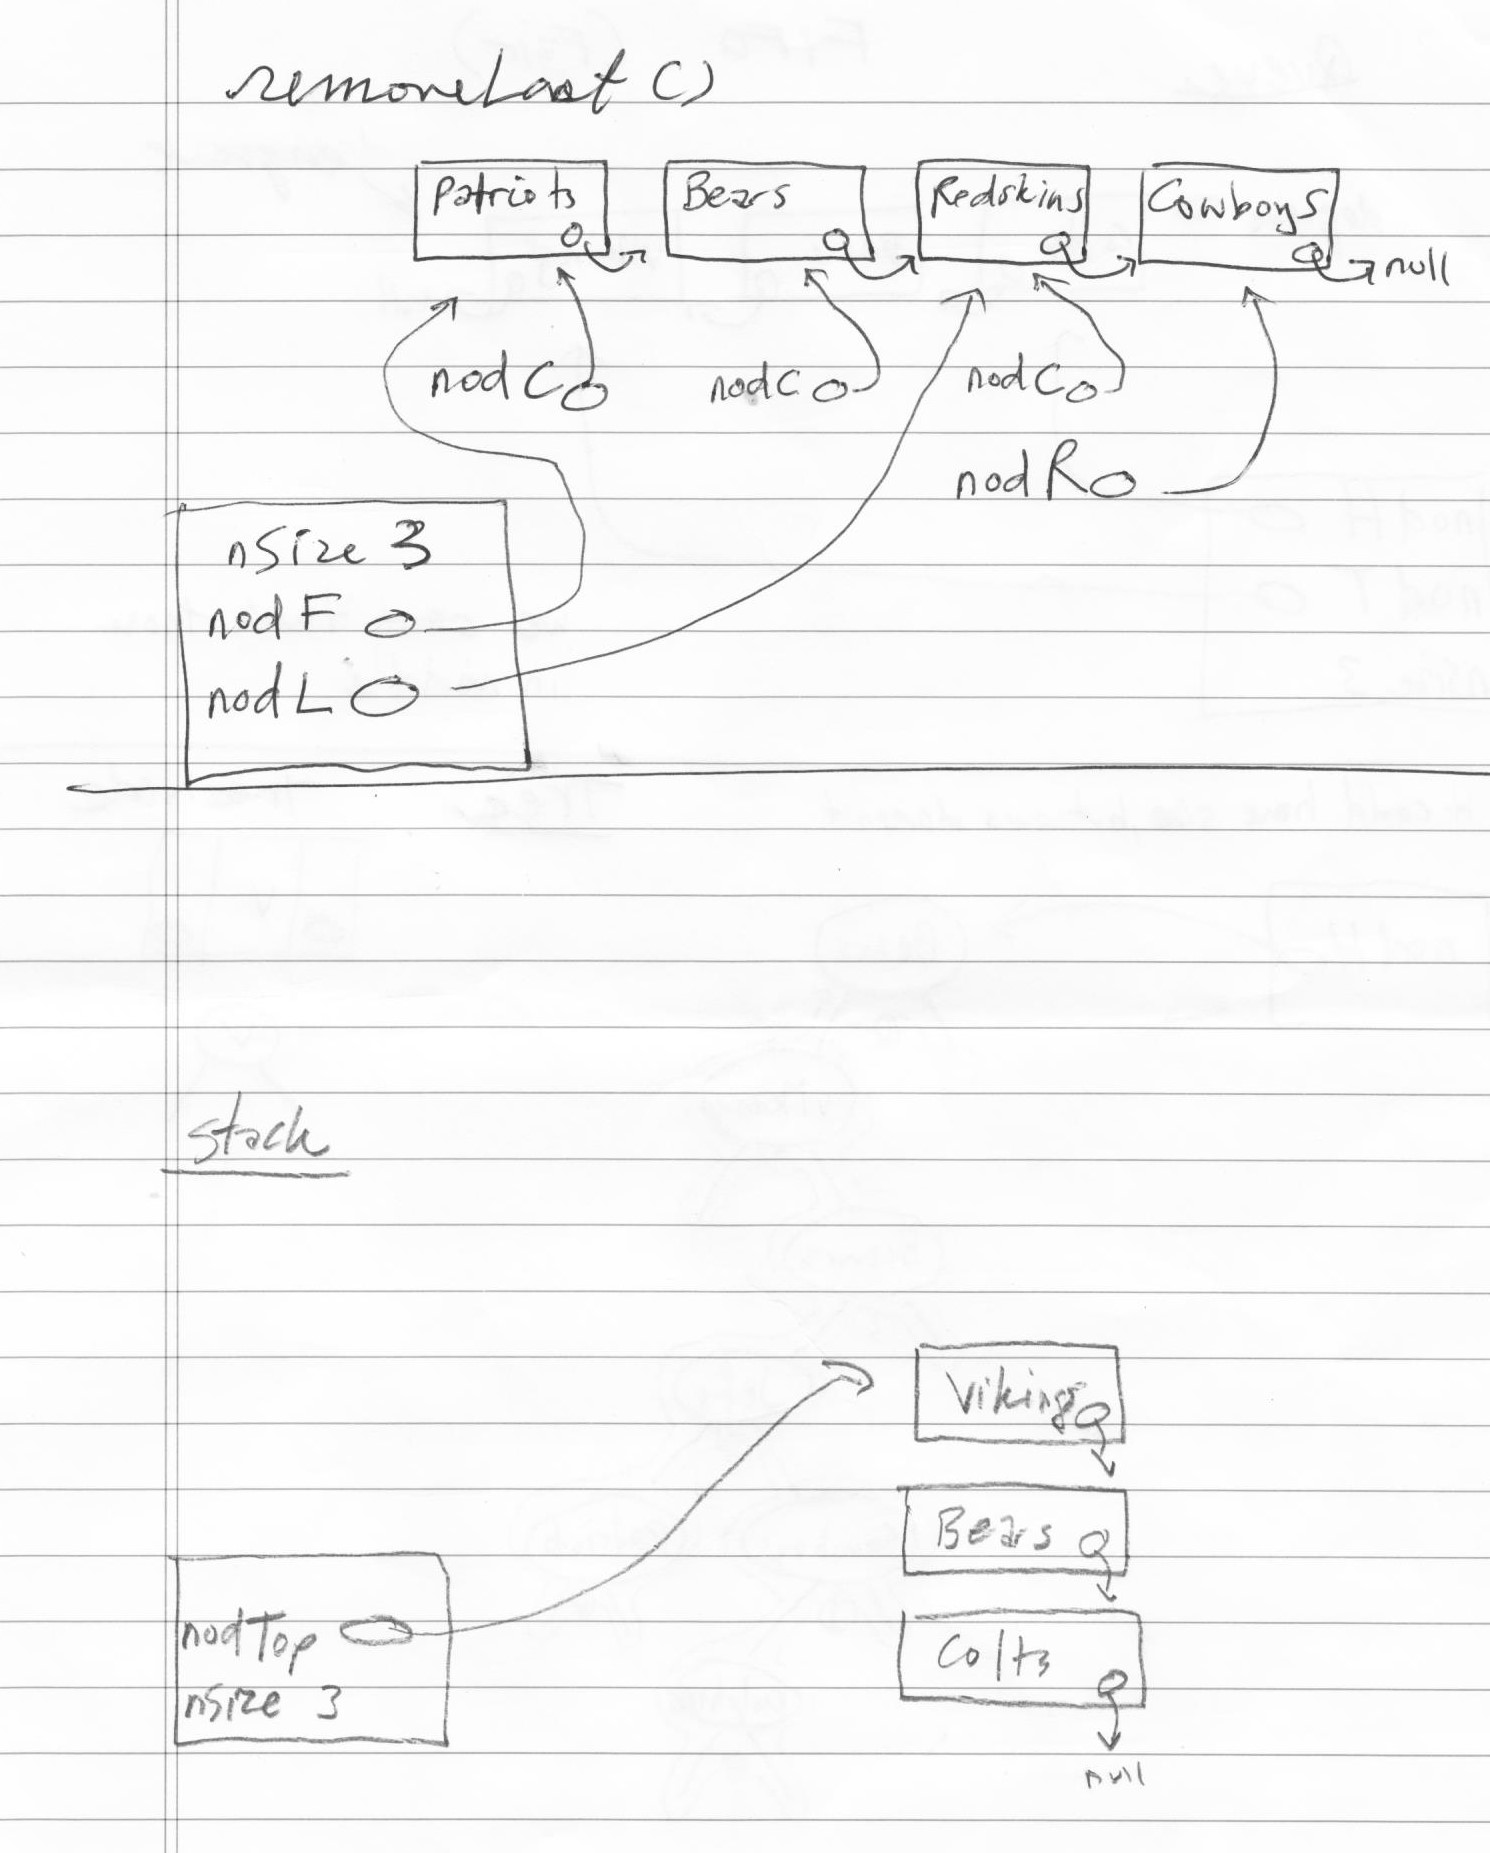 removeLast()
Patriots Bears Redskins Cowboys
null
nodC nodC nodC
nodR
nSize 3
nodF
nodL
stack
Vikings
Bears
nodTop
Colts
nSize 3
null